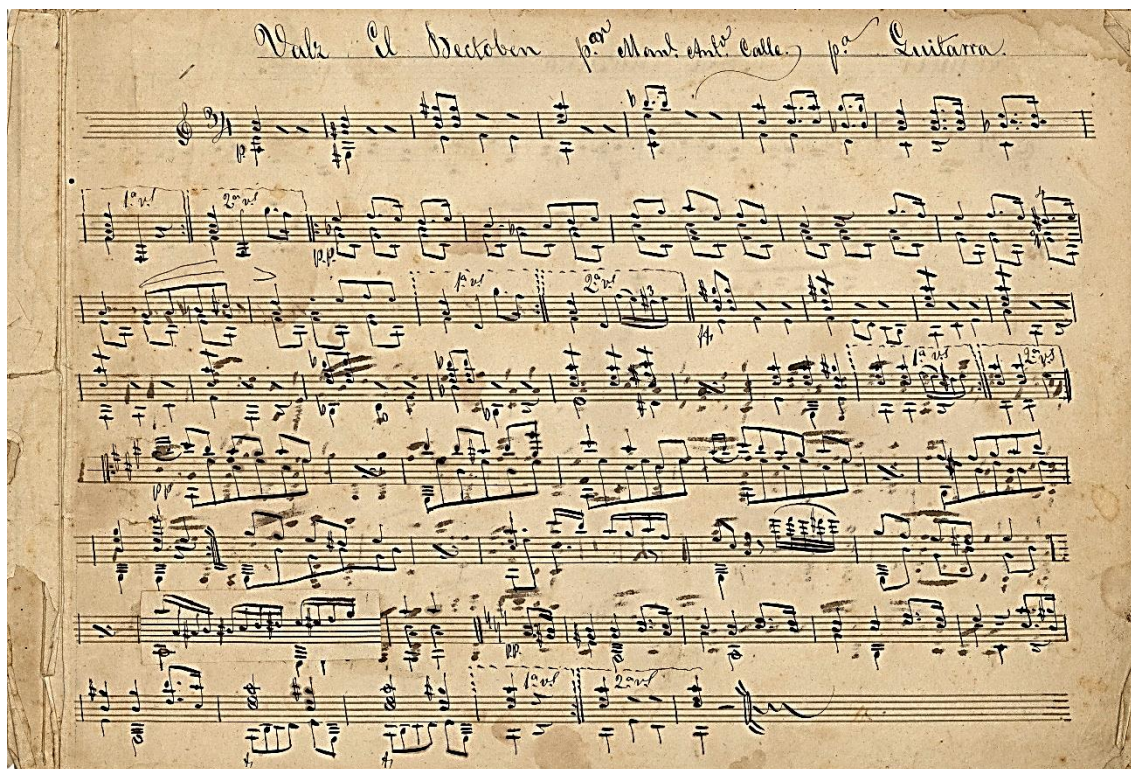 Valz el Bectoben p.ᵒʳ Man.ˡ Ant.º Calle. p.ª Guitarra.
3/4
p.
1.ª v.ˢ 2.ª v.ˢ
p.p.
1.ª v.ˢ 2.ª v.ˢ
3
1.ª v.ˢ 2.ª v.ˢ
p.p.
p.p.
1.ª v.ˢ 2.ª v.ˢ